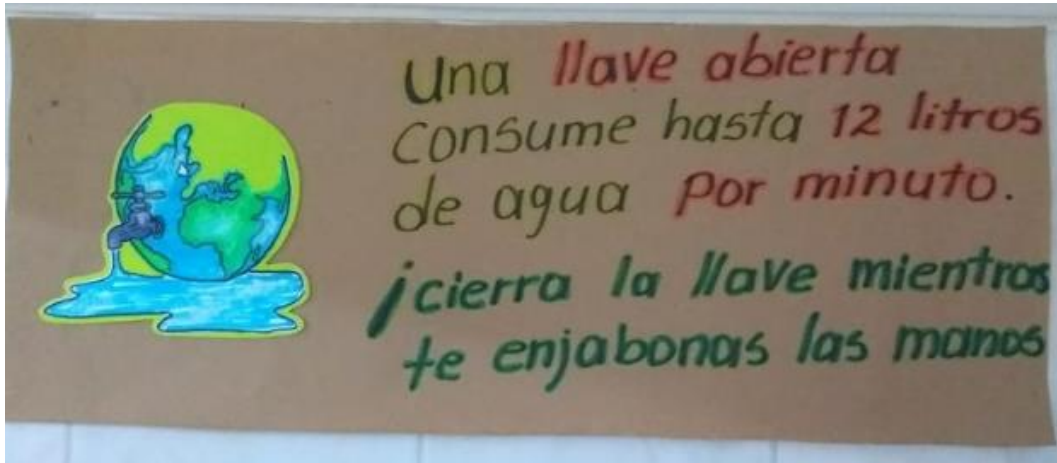 Una llave abierta
consume hasta 12 litros
de agua por minuto.
¡cierra la llave mientras
te enjabonas las manos